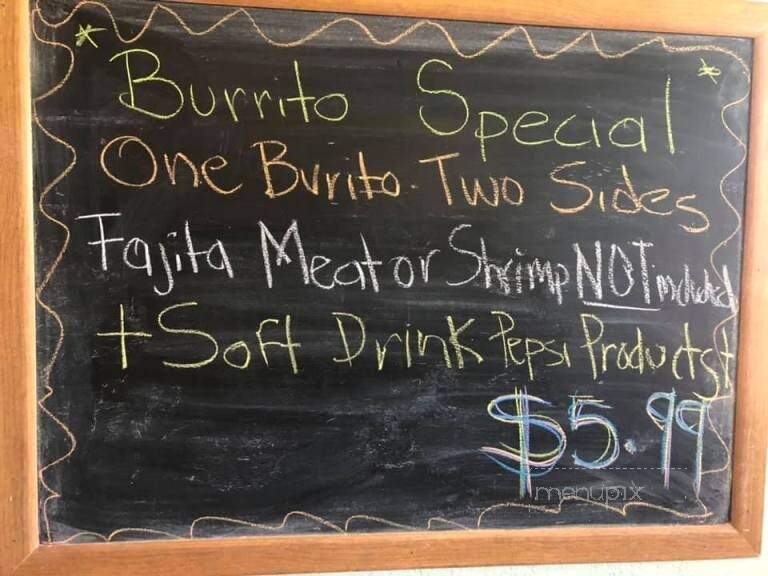 * Burrito Special *
One Burito Two Sides
Fajita Meat or Shrimp NOT included
+ Soft Drink Pepsi Products +
$5.99
menupix